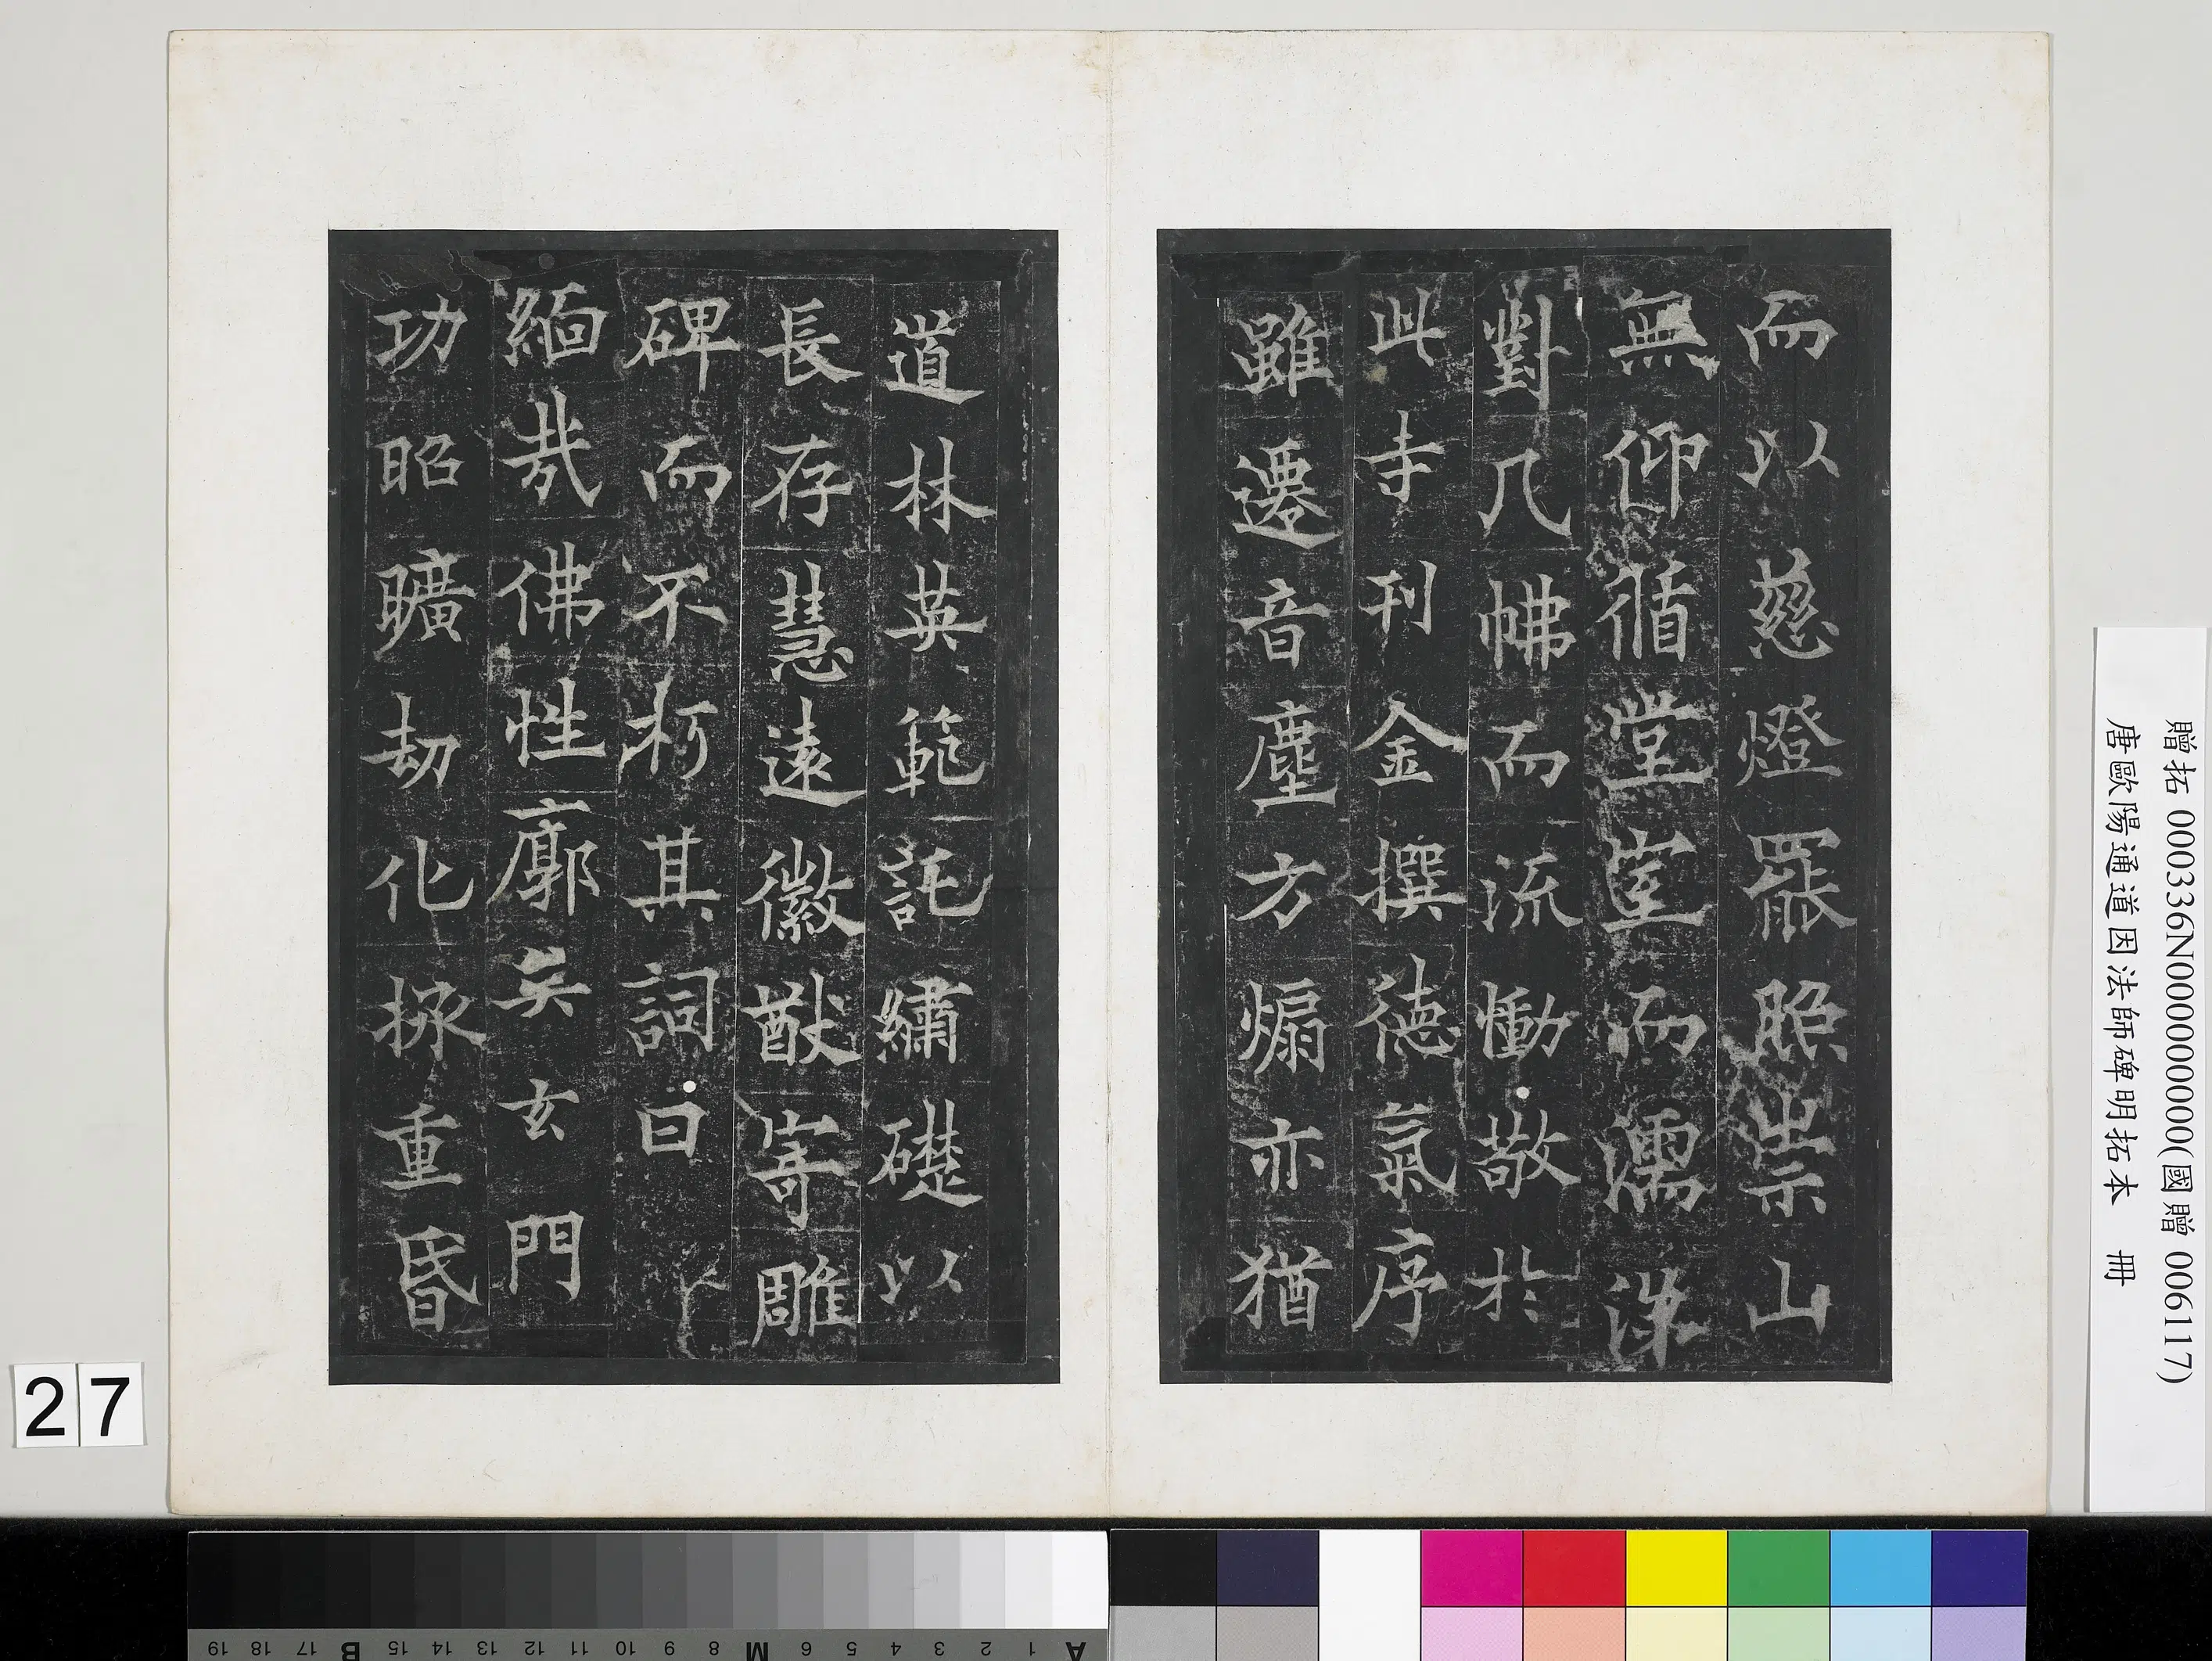 而以慈燈罷照崇山
無仰循堂室而濡洟
對几而流慟敬於
此寺刊金撰德氣序
雖遷音塵方煽亦猶
道林英範託繡礎以
長存慧遠徽猷寄雕
碑而不朽其詞曰
緬哉佛性廓矣玄門
功昭曠劫化拯重昏
贈拓 000336N000000000(國贈 006117)
唐歐陽通道因法師碑明拓本 冊
27
A 1 2 3 4 5 6 M 8 9 10 11 12 13 14 15 B 17 18 19